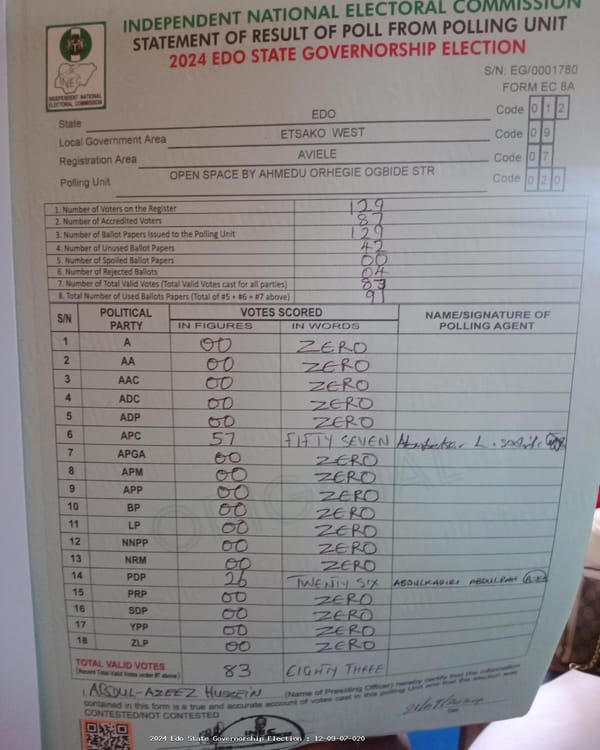 INDEPENDENT NATIONAL ELECTORAL COMMISSION
STATEMENT OF RESULT OF POLL FROM POLLING UNIT
2024 EDO STATE GOVERNORSHIP ELECTION
INEC
INDEPENDENT NATIONAL
ELECTORAL COMMISSION
S/N: EG/0001780
FORM EC 8A
State EDO Code 0 1 2
Local Government Area ETSAKO WEST Code 0 9
Registration Area AVIELE Code 0 7
Polling Unit OPEN SPACE BY AHMEDU ORHEGIE OGBIDE STR Code 0 2 0
1. Number of Voters on the Register 129
2. Number of Accredited Voters 87
3. Number of Ballot Papers Issued to the Polling Unit 129
4. Number of Unused Ballot Papers 42
5. Number of Spoiled Ballot Papers 00
6. Number of Rejected Ballots 04
7. Number of Total Valid Votes (Total Valid Votes cast for all parties) 83
8. Total Number of Used Ballots Papers (Total of #5 + #6 + #7 above) 91
S/N POLITICAL PARTY VOTES SCORED NAME/SIGNATURE OF POLLING AGENT
IN FIGURES IN WORDS
1 A 00 ZERO
2 AA 00 ZERO
3 AAC 00 ZERO
4 ADC 00 ZERO
5 ADP 00 ZERO
6 APC 57 FIFTY SEVEN Abubakar L.
7 APGA 00 ZERO
8 APM 00 ZERO
9 APP 00 ZERO
10 BP 00 ZERO
11 LP 00 ZERO
12 NNPP 00 ZERO
13 NRM 00 ZERO
14 PDP 26 TWENTY SIX ABDULKADIRI ABDULPAH
15 PRP 00 ZERO
16 SDP 00 ZERO
17 YPP 00 ZERO
18 ZLP 00 ZERO
ORIGINAL
TOTAL VALID VOTES 83 EIGHTY THREE
(Record Total Valid Votes under #7 above)
I, ABDUL-AZEEZ HUSSEIN (Name of Presiding Officer) hereby certify that the information
contained in this form is a true and accurate account of votes cast in this polling Unit and that the election was
CONTESTED/NOT CONTESTED
Date
2024 Edo State Governorship Election : 12-09-07-020